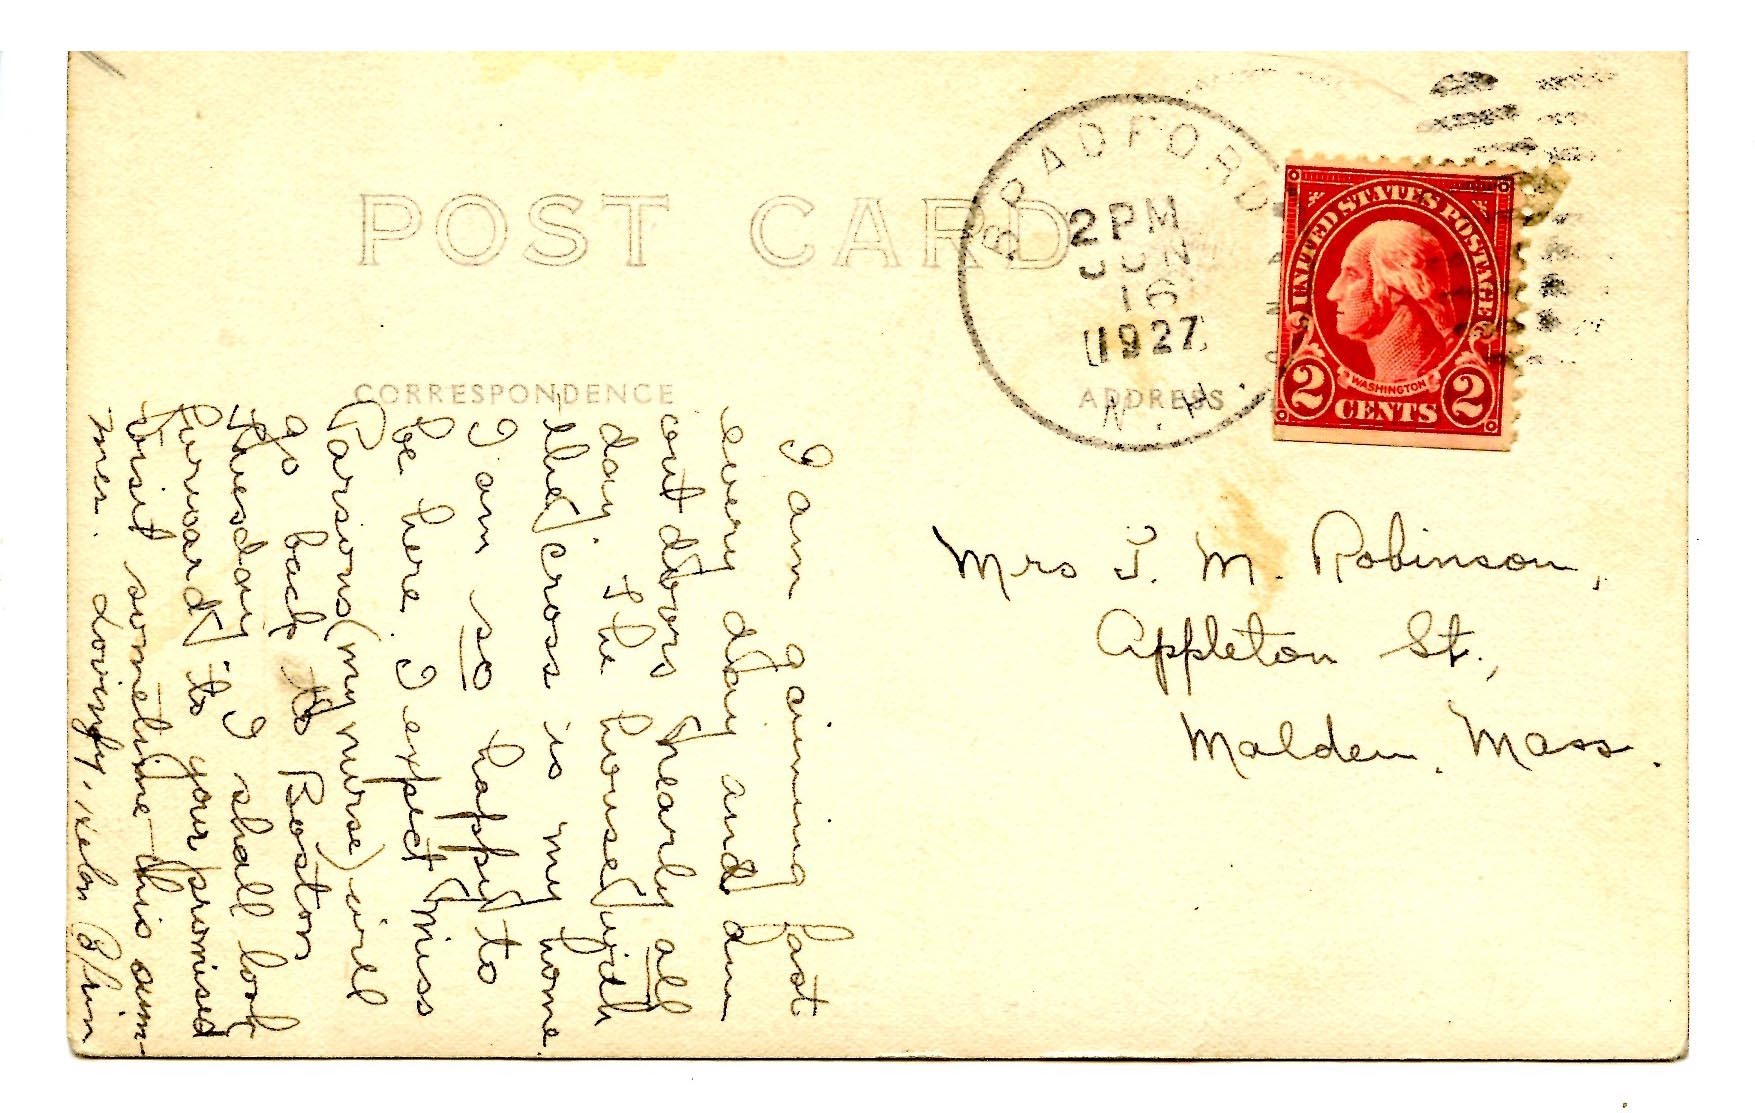 POST CARD
CORRESPONDENCE
ADDRESS
BRADFORD
2 PM
JUN
16
1927
N.H.
UNITED STATES POSTAGE
WASHINGTON
2 CENTS 2
Mrs J. M. Robinson,
Appleton St.,
Malden, Mass.
I am gaining fast
every day and am
out doors nearly all
day. The house with
the cross is my home.
I am so happy to
be here. I expect Miss
Parsons (my nurse) will
go back to Boston
Thursday. I shall look
forward to your promised
visit sometime this sum-
mer. Lovingly,